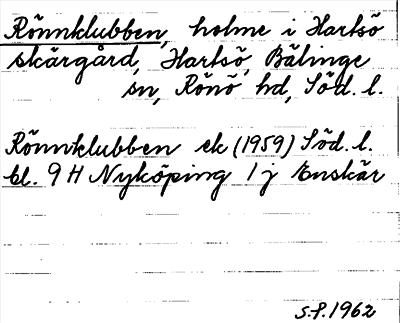 Rönnklubben, holme i Hartsö
skärgård, Hartsö, Bälinge
sn, Rönö hd, Söd. l.
Rönnklubben ek (1959) Söd. l.
bl. 9 H Nyköping 1 j Enskär
S.P. 1962